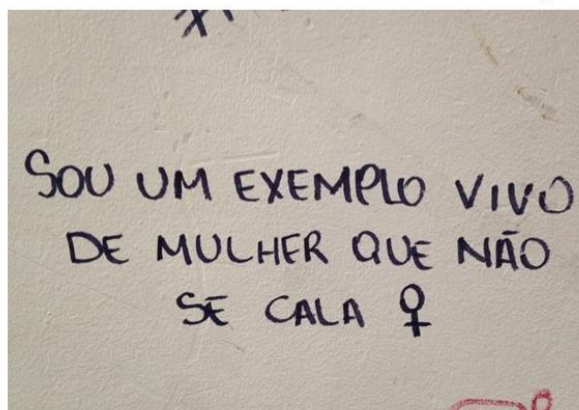 SOU UM EXEMPLO VIVO
DE MULHER QUE NÃO
SE CALA ♀